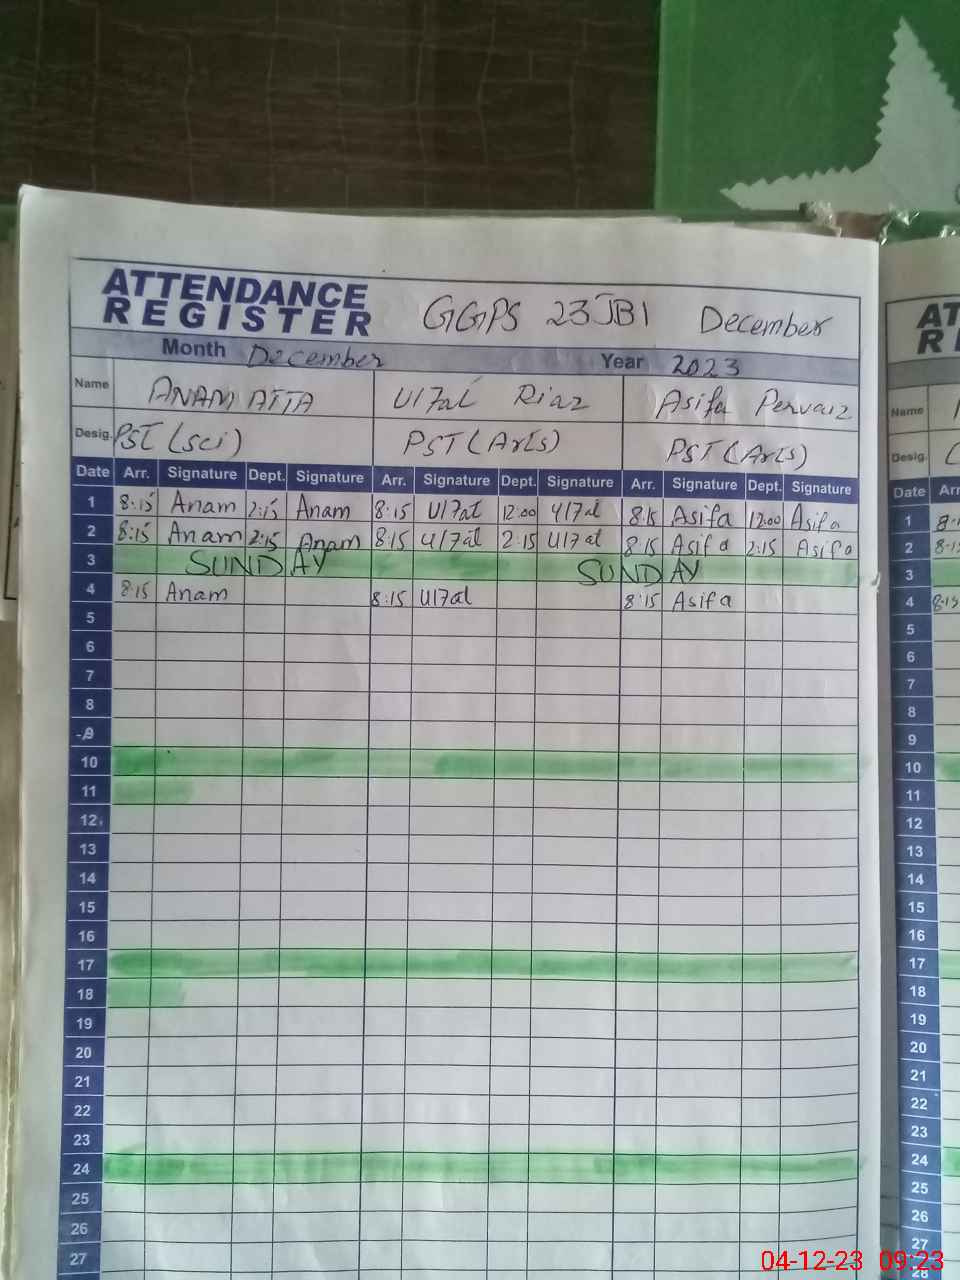 ATTENDANCE
REGISTER
GGPS 23JB1 December
Month December Year 2023
Name ANAM ATTA Riaz Asifa Pervaiz
Desig. PST (sci) PST (Arts) PST (Arts)
Date Arr. Signature Dept. Signature Arr. Signature Dept. Signature Arr. Signature Dept. Signature
1 8:15 Anam 2:15 Anam 8:15 12:00 8:15 Asifa 12:00 Asifa
2 8:15 Anam 2:15 Anam 8:15 2:15 8:15 Asifa 2:15 Asifa
3 SUNDAY SUNDAY
4 8:15 Anam 8:15 8:15 Asifa
5
6
7
8
9
10
11
12
13
14
15
16
17
18
19
20
21
22
23
24
25
26
27
Name
Desig.
Date
1
2
3
4
5
6
7
8
9
10
11
12
13
14
15
16
17
18
19
20
21
22
23
24
25
26
27
28
04-12-23 09:23